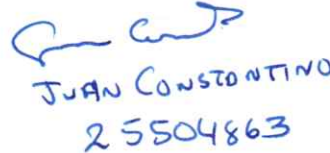 JUAN CONSTONTINO
25504863